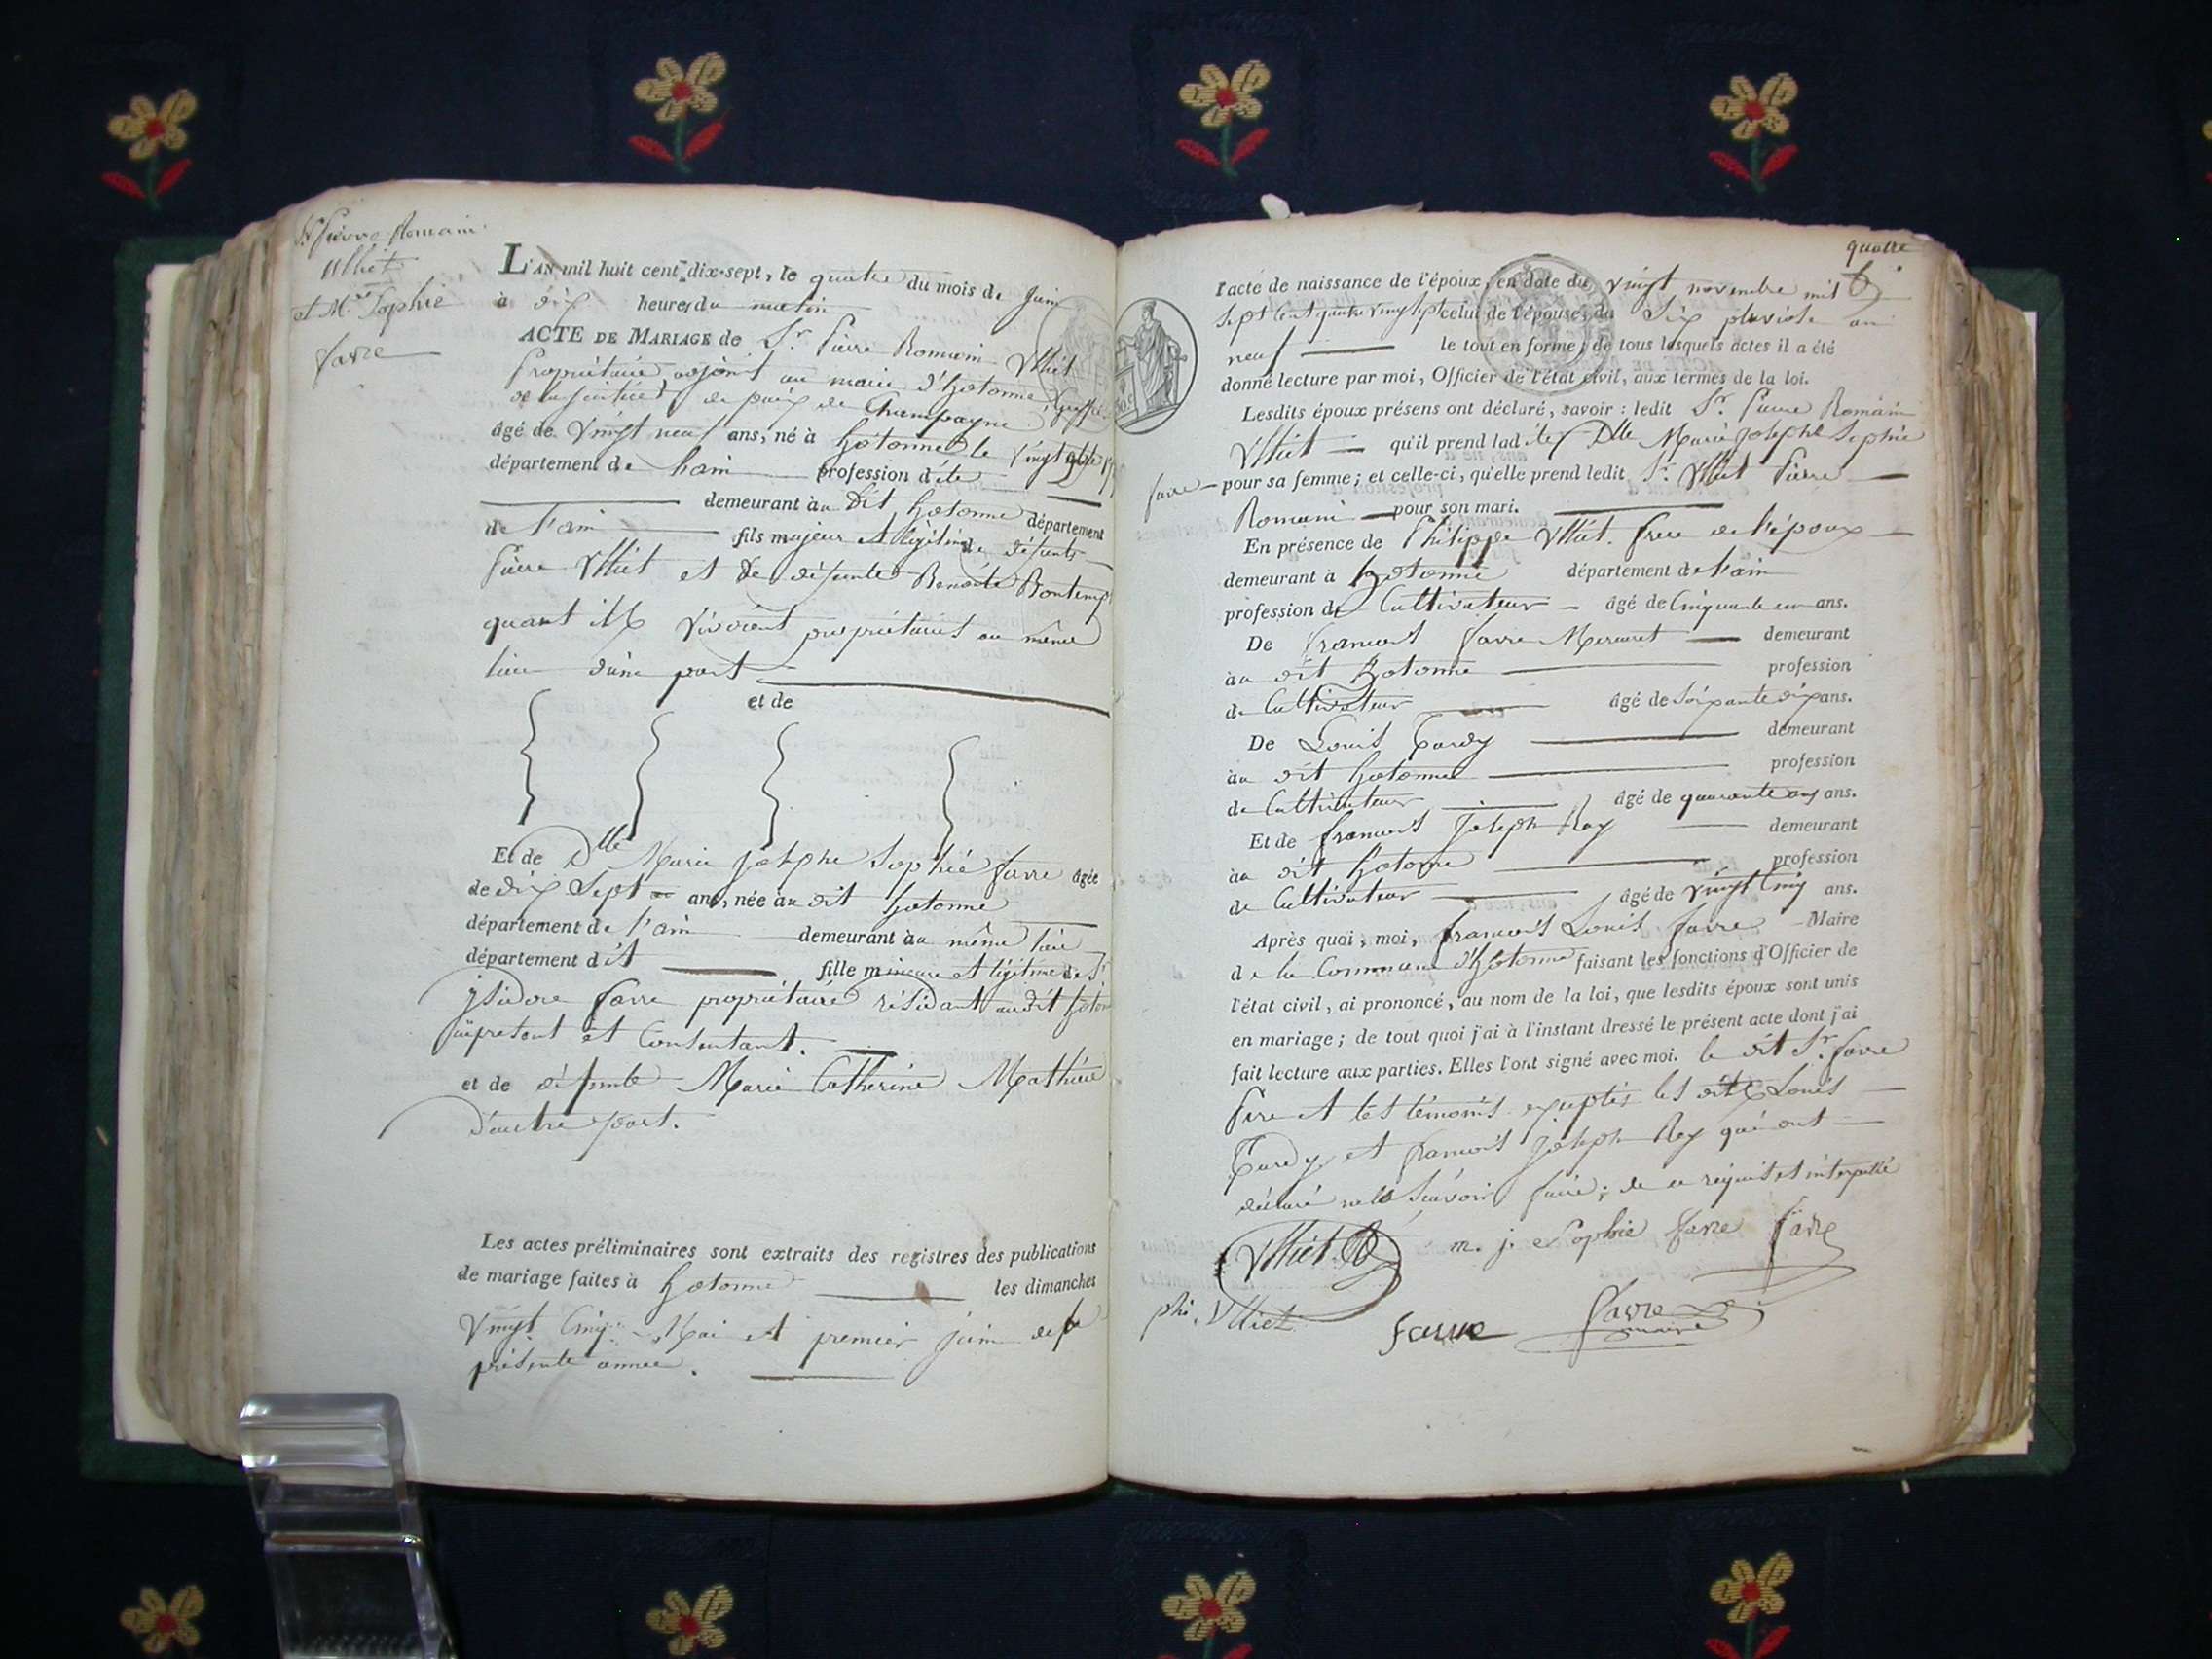 Sr pierre Romain
Ulliet
et Mie Sophie
favre
L'AN mil huit cent dix-sept, le quatre du mois de Juin
à dix heures du matin
ACTE DE MARIAGE de Sr. Pierre Romain Ulliet
Propriétaire adjoint au maire d'hotonne, Greffier
de la justice de paix de Champagne
âgé de Vingt neuf ans, né à hotonne le vingt
département de hain profession d'éte
demeurant au Dit hotonne département
de l'ain fils majeur et légitime de défunts
Pierre Ulliet et de défunte Benoite Bontemp
quant ils vivoient propriétaires au même
lieu d'une part
et de
Et de Dlle Marie Josephe Sophie favre âgée
de Dix Sept ans, née au dit hotonne
département de l'ain demeurant au même lieu
département dit fille mineure et légitime de Sr
ysidore favre propriétaire résidant audit hoton
présent et Consentant.
et de défunte Marie Catherine Mathieu
d'autre part.
Les actes préliminaires sont extraits des registres des publications
de mariage faites à hotonne les dimanches
Vingt Cinq Mai et premier juin de la
présente année.
quatre
l'acte de naissance de l'époux, en date du vingt novembre mil
sept cent quatre vingt sept celui de l'épouse, du Six pluviose an
neuf le tout en forme; de tous lesquels actes il a été
donné lecture par moi, Officier de l'état civil, aux termes de la loi.
Lesdits époux présens ont déclaré, savoir: ledit Sr. Pierre Romain
Ulliet qu'il prend ladite Dlle Marie Josephe Sophie
favre pour sa femme; et celle-ci, qu'elle prend ledit Sr. Ulliet Pierre
Romain pour son mari.
En présence de Philippe Ulliet. frere de l'époux
demeurant à hotonne département de l'ain
profession de Cultivateur âgé de Cinquante un ans.
De francois favre Mercuret demeurant
au dit hotonne profession
de Cultivateur âgé de Soixante dix ans.
De Louis Tardy demeurant
au dit hotonne profession
de Cultivateur âgé de quarante ans.
Et de francois Joseph Rey demeurant
au dit hotonne profession
de Cultivateur âgé de vingt Cinq ans.
Après quoi, moi, francois Louis favre Maire
de la Commune d'hotonne faisant les fonctions d'Officier de
l'état civil, ai prononcé, au nom de la loi, que lesdits époux sont unis
en mariage; de tout quoi j'ai à l'instant dressé le présent acte dont j'ai
fait lecture aux parties. Elles l'ont signé avec moi. le dit Sr. favre
Pere et les témoins exceptés les dits Louis
Tardy et francois Joseph Rey qui ont
déclaré ne le Scavoir faire; de ce requis et interpellé
Ulliet. m. j. Sophie favre favre
phi. Ulliet favre favre
maire